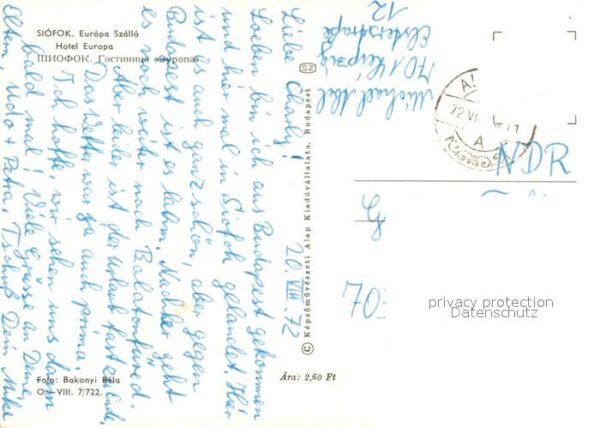 SIÓFOK. Európa Szálló
Hotel Europa
ШИОФОК. Гостиница «Эуропа»
20. VIII. 72
Liebe Charly!
Soeben bin ich aus Budapest gekommen
und hier mal in Siofok gelandet. Hier
ist es auch ganz schön, aber gegen
Budapest ist es lahm. Nachher geht
es noch weiter nach Balatonfüred.
Aber leider ist der Urlaub fast zu Ende.
Das Wetter war ja auch prima.
Ich hoffe, wir sehen uns dann
bald mal! Viele Grüsse an Deine
Eltern, Udo + Petra, Tschüß Dein Mike
Foto: Bakonyi Béla
O—VIII. 7/722.
Ára: 2,60 Ft
© Képzőművészeti Alap Kiadóvállalata, Budapest
SZ
Michael
701 Leipzig
Elsterstraße
12
72 VIII
A
NDR
70
privacy protection
Datenschutz